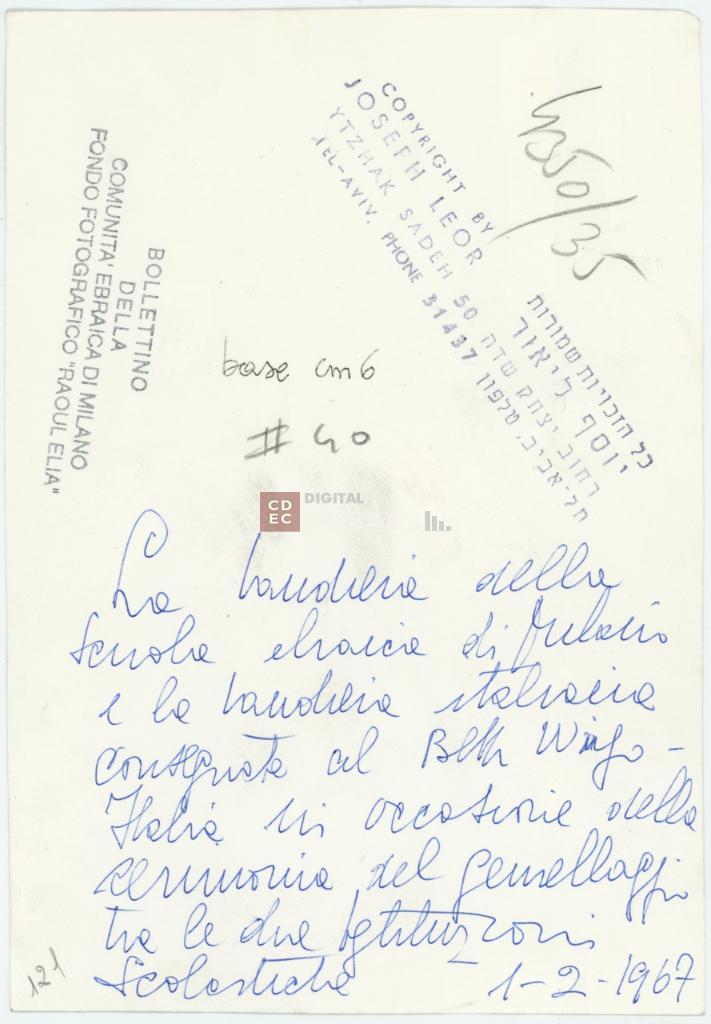 COPYRIGHT BY
JOSEPH LEOR
YTZHAK SADEH 50
TEL-AVIV. PHONE 31437
כל הזכויות שמורות
יוסף ליאור
רחוב יצחק שדה
תל-אביב, טלפון
4350/35
BOLLETTINO
DELLA
COMUNITA' EBRAICA DI MILANO
FONDO FOTOGRAFICO "RAOUL ELIA"
base cm 6
# 40
CDEC DIGITAL
La bandiera della
Scuola ebraica di Milano
e la bandiera italiana
consegnate al Beth Wingo-
Italia in occasione della
cerimonia del gemellaggio
tra le due Istituzioni
Scolastiche 1-2-1967
121